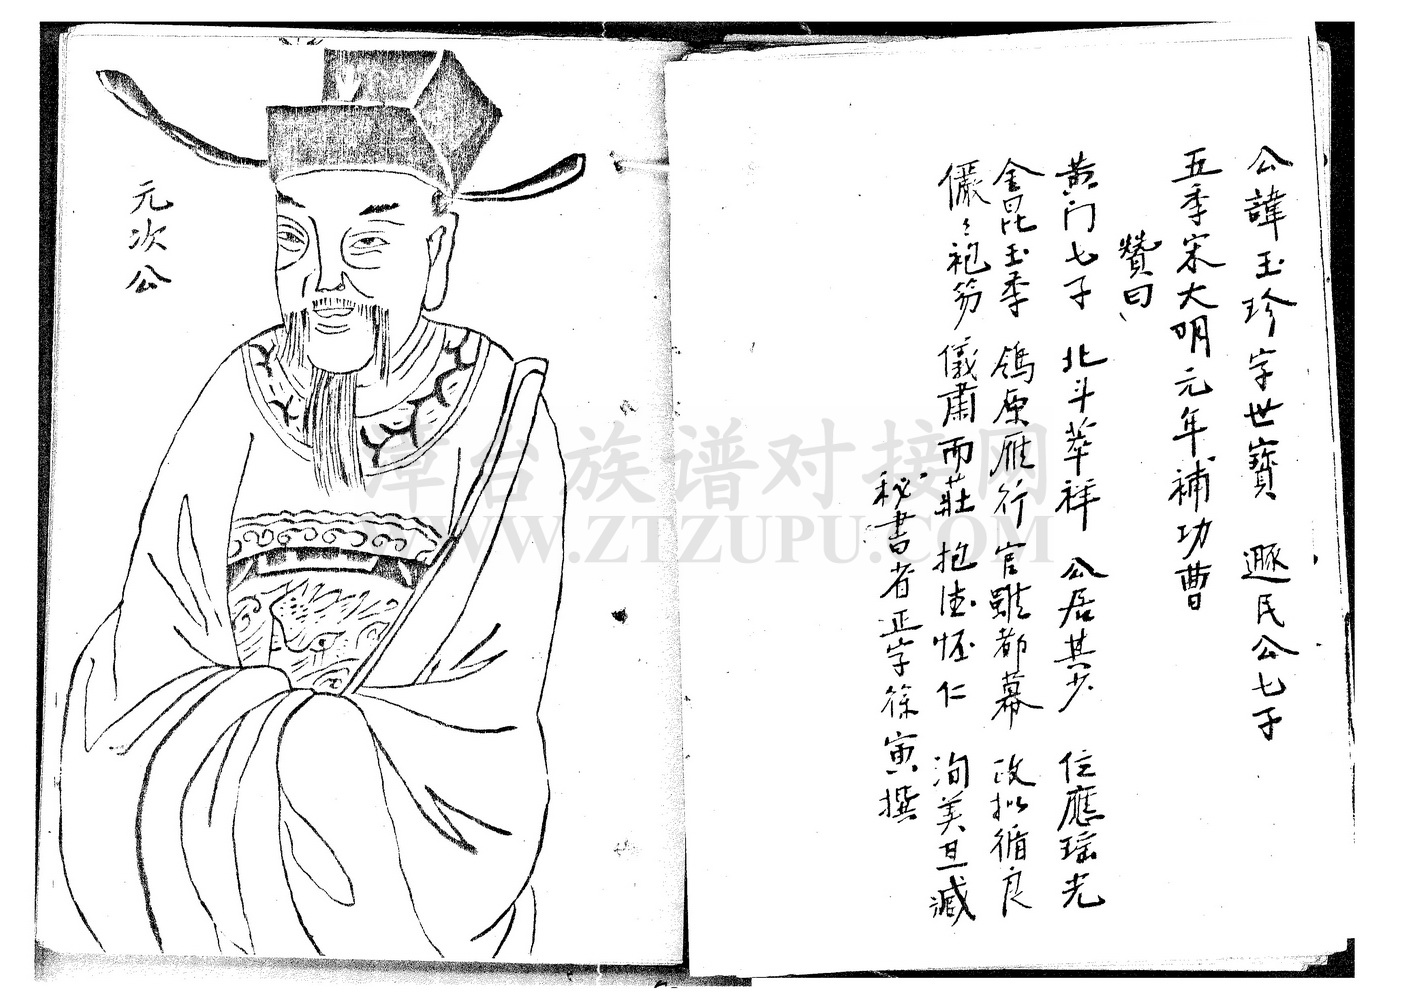 公諱玉珍字世寶 遯民公七子
五季宋大明元年補功曹
贊曰
黄门七子 北斗萃祥 公居其少 位應瑶光
金昆玉季 鴒原雁行 官雖都幕 政拟循良
儼〻袍笏 儀肅而莊 抱德怀仁 洵美且臧
秘書省正字徐寅撰
元次公
潭台族谱对接网
WWW.ZTZUPU.COM